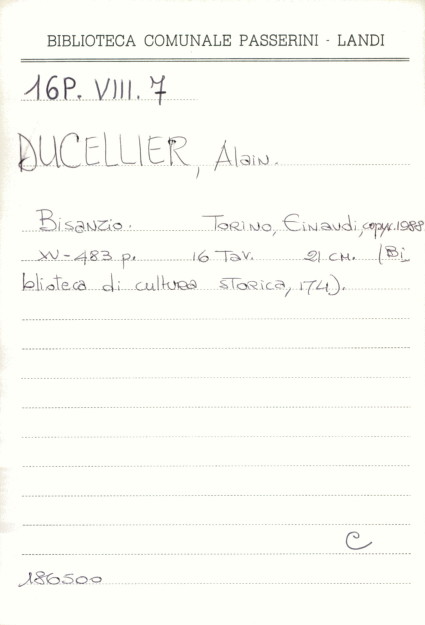 BIBLIOTECA COMUNALE PASSERINI - LANDI
16P. VIII. 7
DUCELLIER, Alain.
Bisanzio. Torino, Einaudi, copyr. 1988
XV-483 p. 16 Tav. 21 cm. (Bi
blioteca di cultura storica, 174).
C
186500